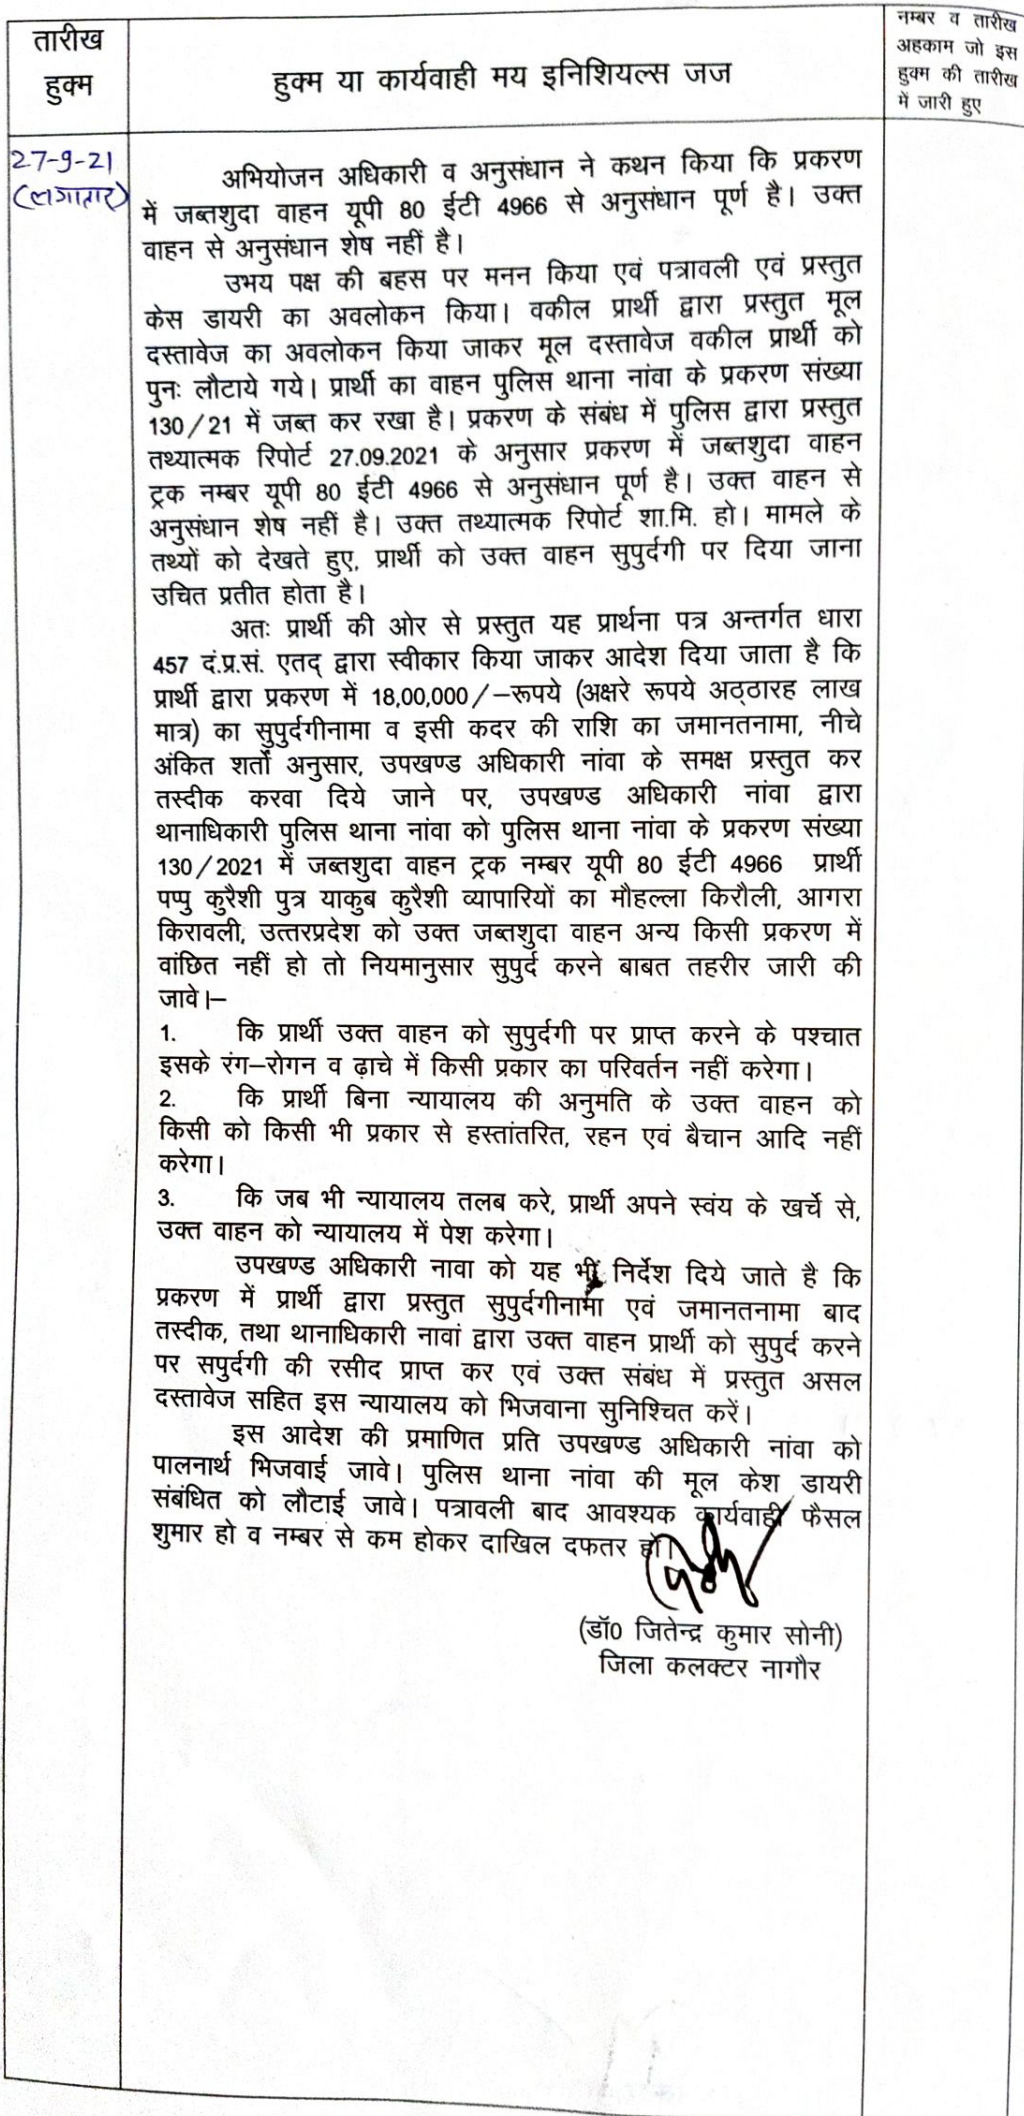 तारीख
हुक्म
हुक्म या कार्यवाही मय इनिशियल्स जज
नम्बर व तारीख
अहकाम जो इस
हुक्म की तारीख
में जारी हुए
27-9-21
(लगातार)
अभियोजन अधिकारी व अनुसंधान ने कथन किया कि प्रकरण
में जब्तशुदा वाहन यूपी 80 ईटी 4966 से अनुसंधान पूर्ण है। उक्त
वाहन से अनुसंधान शेष नहीं है।
उभय पक्ष की बहस पर मनन किया एवं पत्रावली एवं प्रस्तुत
केस डायरी का अवलोकन किया। वकील प्रार्थी द्वारा प्रस्तुत मूल
दस्तावेज का अवलोकन किया जाकर मूल दस्तावेज वकील प्रार्थी को
पुनः लौटाये गये। प्रार्थी का वाहन पुलिस थाना नांवा के प्रकरण संख्या
130/21 में जब्त कर रखा है। प्रकरण के संबंध में पुलिस द्वारा प्रस्तुत
तथ्यात्मक रिपोर्ट 27.09.2021 के अनुसार प्रकरण में जब्तशुदा वाहन
ट्रक नम्बर यूपी 80 ईटी 4966 से अनुसंधान पूर्ण है। उक्त वाहन से
अनुसंधान शेष नहीं है। उक्त तथ्यात्मक रिपोर्ट शा.मि. हो। मामले के
तथ्यों को देखते हुए, प्रार्थी को उक्त वाहन सुपुर्दगी पर दिया जाना
उचित प्रतीत होता है।
अतः प्रार्थी की ओर से प्रस्तुत यह प्रार्थना पत्र अन्तर्गत धारा
457 दं.प्र.सं. एतद् द्वारा स्वीकार किया जाकर आदेश दिया जाता है कि
प्रार्थी द्वारा प्रकरण में 18,00,000/–रूपये (अक्षरे रूपये अठ्ठारह लाख
मात्र) का सुपुर्दगीनामा व इसी कदर की राशि का जमानतनामा, नीचे
अंकित शर्तो अनुसार, उपखण्ड अधिकारी नांवा के समक्ष प्रस्तुत कर
तस्दीक करवा दिये जाने पर, उपखण्ड अधिकारी नांवा द्वारा
थानाधिकारी पुलिस थाना नांवा को पुलिस थाना नांवा के प्रकरण संख्या
130/2021 में जब्तशुदा वाहन ट्रक नम्बर यूपी 80 ईटी 4966 प्रार्थी
पप्पु कुरैशी पुत्र याकुब कुरैशी व्यापारियों का मौहल्ला किरौली, आगरा
किरावली, उत्तरप्रदेश को उक्त जब्तशुदा वाहन अन्य किसी प्रकरण में
वांछित नहीं हो तो नियमानुसार सुपुर्द करने बाबत तहरीर जारी की
जावे।–
1. कि प्रार्थी उक्त वाहन को सुपुर्दगी पर प्राप्त करने के पश्चात
इसके रंग–रोगन व ढ़ाचे में किसी प्रकार का परिवर्तन नहीं करेगा।
2. कि प्रार्थी बिना न्यायालय की अनुमति के उक्त वाहन को
किसी को किसी भी प्रकार से हस्तांतरित, रहन एवं बैचान आदि नहीं
करेगा।
3. कि जब भी न्यायालय तलब करे, प्रार्थी अपने स्वंय के खर्चे से,
उक्त वाहन को न्यायालय में पेश करेगा।
उपखण्ड अधिकारी नावा को यह भी निर्देश दिये जाते है कि
प्रकरण में प्रार्थी द्वारा प्रस्तुत सुपुर्दगीनामा एवं जमानतनामा बाद
तस्दीक, तथा थानाधिकारी नावां द्वारा उक्त वाहन प्रार्थी को सुपुर्द करने
पर सपुर्दगी की रसीद प्राप्त कर एवं उक्त संबंध में प्रस्तुत असल
दस्तावेज सहित इस न्यायालय को भिजवाना सुनिश्चित करें।
इस आदेश की प्रमाणित प्रति उपखण्ड अधिकारी नांवा को
पालनार्थ भिजवाई जावे। पुलिस थाना नांवा की मूल केश डायरी
संबंधित को लौटाई जावे। पत्रावली बाद आवश्यक कार्यवाही फैसल
शुमार हो व नम्बर से कम होकर दाखिल दफतर हो।
(डॉ0 जितेन्द्र कुमार सोनी)
जिला कलक्टर नागौर